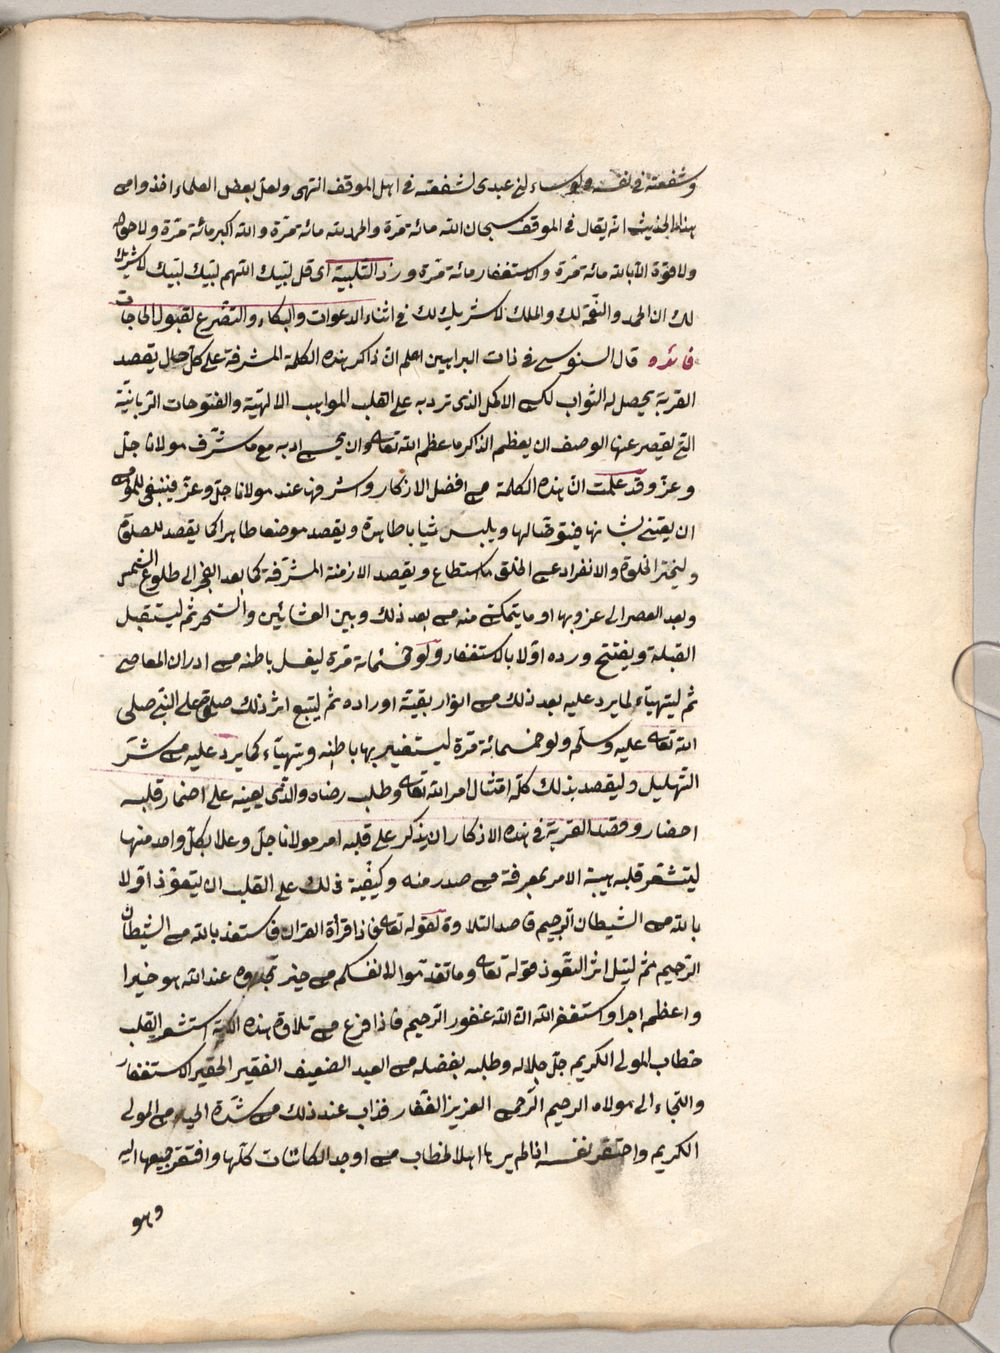 وشفعته في نفسه ولو ساءلني عبدى لشفعته في اهل الموقف انتهى ولعل بعض العلماء اخذوا من
هذا الحديث انه يقال في الموقف سبحان الله مائة مرّة والحمد لله مائة مرّة والله اكبر مائة مرّة ولا حول
ولا قوّة الا بالله مائة مرّة والاستغفار مائة مرّة وزد التلبية اى قل لبّيك اللهم لبّيك لبّيك لا شريك
لك ان الحمد والنّعمة لك والملك لا شريك لك في اثناء الدعوات والبكاء والتضرع لقبول الحاجات
فائده قال السنوسى في ذات البراهين اعلم انّ ذاكر هذه الكلمة المشرفة على كلّ حال يقصد
القربة يحصل له الثواب لكن الاكمل الذى ترد به على القلب المواهب الالهيّة والفتوحات الربانيّة
التى يقصر عنها الوصف ان يعظم الذاكر ما عظم الله تعالى وان يحسن ادبه مع ما شرّف مولانا جلّ
وعزّ وقد علمت انّ هذه الكلمة من افضل الاذكار واشرفها عند مولانا جلّ وعزّ فينبغى للمؤمن
ان يعتنى بشانها فيتوضّا لها ويلبس ثيابا طاهرة ويقصد موضعا طاهرا كما يقصد للصلوة
وليختر الخلوة والانفراد عن الخلق ما استطاع ويقصد الازمنة المشرّفة كما بعد الفجر الى طلوع الشمس
وبعد العصر الى غروبها او ما يتمكن منه من بعد ذلك وبين العشائين والسّحر ثم ليستقبل
القبلة ويفتتح ورده اوّلا بالاستغفار ولو خمسمائة مرّة ليغسل باطنه من ادران المعاصى
ثم ليتهيّاء لما يرد عليه بعد ذلك من انوار بقيّة اوراده ثم ليتبع اثر ذلك صلوة على النّبى صلى
الله تعالى عليه وسلّم ولو خمسمائة مرّة ليستغير بها باطنه ويتهيّاء لما يرد عليه من سرّ
التهليل وليقصد بذلك كلّه امتثال امر الله تعالى وطلب رضاه والذى يعينه على احضار قلبه
احضار وقصد القربة في هذه الاذكار ان يذكر على قلبه امر مولانا جلّ وعلا بكلّ واحد منها
ليتشعر قلبه هيبة الامر بمعرفة من صدر منه وكيفية ذلك على القلب ان يتعوّذ اوّلا
بالله من الشيطان الرجيم قاصد التلاوة لقوله تعالى فاذا قرأة القران فاستعذ بالله من الشيطان
الرجيم ثمّ ليتل اثر التعوّذ قوله تعالى وما تقدّموا لانفسكم من خير تجدوه عند الله هو خيرا
واعظم اجرا واستغفر الله انّ الله غفور الرحيم فاذا فرغ من تلاوة هذه الاية استشعر القلب
خطاب المولى الكريم جلّ جلاله وطلبه بفضله من العبد الضعيف الفقير الحقير الاستغفار
والتجاء الى مولاه الرحيم الرّحمن العزيز الغفّار فذاب عند ذلك من شدّة الحياء من المولى
الكريم واحتقر نفسه اذا لم يرها اهلا لخطاب من اوجد الكائنات كلّها وافتقر جميعها اليه
وهو